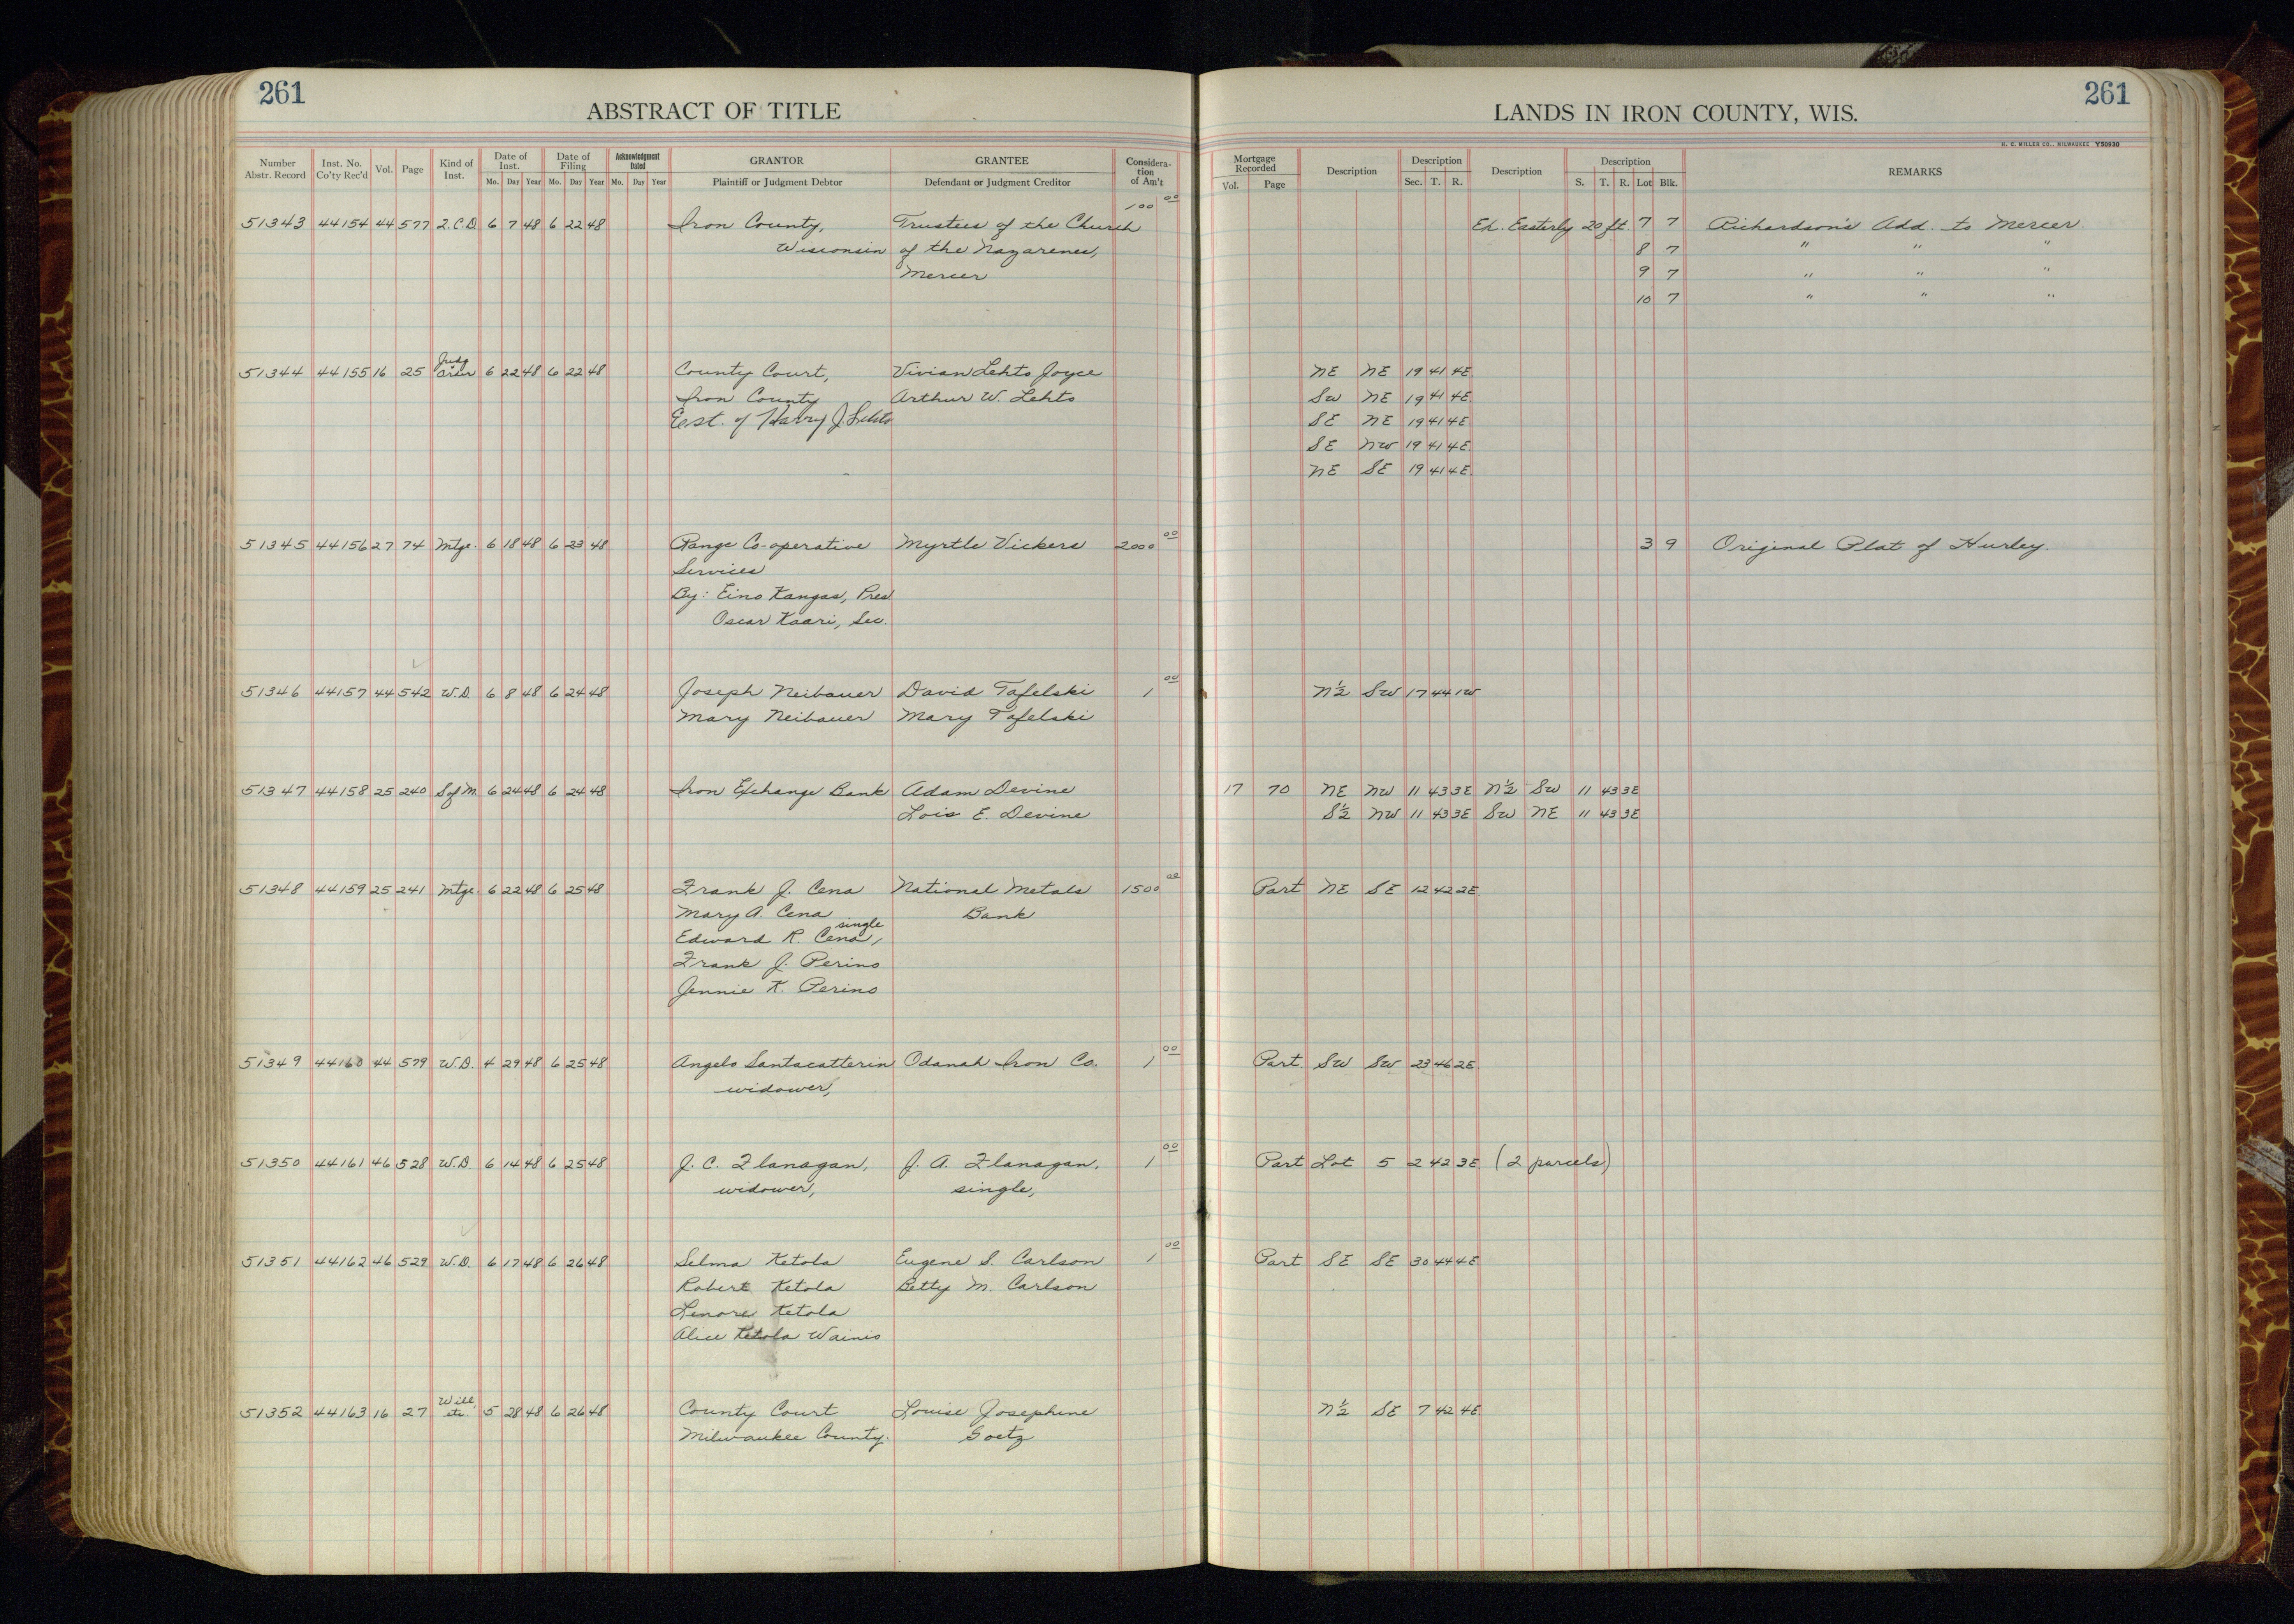 261
ABSTRACT OF TITLE
LANDS IN IRON COUNTY, WIS.
261
H. C. MILLER CO., MILWAUKEE Y50930
Number Abstr. Record Inst. No. Co'ty Rec'd Vol. Page Kind of Inst. Date of Inst. Mo. Day Year Date of Filing Mo. Day Year Acknowledgment Dated Mo. Day Year GRANTOR Plaintiff or Judgment Debtor GRANTEE Defendant or Judgment Creditor Considera-tion of Am't Mortgage Recorded Vol. Page Description Description Sec. T. R. Description Description S. T. R. Lot Blk. REMARKS
51343 44154 44 577 2.C.D. 6 7 48 6 22 48 Iron County, Trustees of the Church 100 00 Ex. Easterly 20 ft. 7 7 Richardson's Add. to Mercer
Wisconsin of the Nazarenes, 8 7 " " "
Mercer 9 7 " " "
10 7 " " "
51344 44155 16 25 Judg Order 6 22 48 6 22 48 County Court, Vivian Lehto Joyce NE NE 19 41 4E
Iron County Arthur W. Lehto SW NE 19 41 4E
Est. of Harry J. Lehto SE NE 19 41 4E
SE NW 19 41 4E
NE SE 19 41 4E
51345 44156 27 74 Mtge. 6 18 48 6 23 48 Range Co-operative Myrtle Vickers 2000 00 3 9 Original Plat of Hurley.
Services
By: Eino Kangas, Pres
Oscar Kaari, Sec.
51346 44157 44 542 W.D. 6 8 48 6 24 48 Joseph Neibauer David Tafelski 1 00 N½ SW 17 44 1W
Mary Neibauer Mary Tafelski
51347 44158 25 240 S of M. 6 24 48 6 24 48 Iron Exchange Bank Adam Devine 17 70 NE NW 11 43 3E N½ SW 11 43 3E
Lois E. Devine S½ NW 11 43 3E SW NE 11 43 3E
51348 44159 25 241 Mtge. 6 22 48 6 25 48 Frank J. Cena National Metals 1500 00 Part NE SE 12 42 2E
Mary A. Cena Bank
Edward R. Cena, single
Frank J. Perino
Jennie K. Perino
51349 44160 44 579 W.D. 4 29 48 6 25 48 Angelo Santacatterin Odanah Iron Co. 1 00 Part SW SW 23 46 2E
widower,
51350 44161 46 528 W.D. 6 14 48 6 25 48 J. C. Flanagan, J. A. Flanagan, 1 00 Part Lot 5 2 42 3E (2 parcels)
widower, single,
51351 44162 46 529 W.D. 6 17 48 6 26 48 Selma Ketola Eugene S. Carlson 1 00 Part SE SE 30 44 4E
Robert Ketola Betty M. Carlson
Lenore Ketola
Alice Ketola Wainio
51352 44163 16 27 Will etc 5 28 48 6 26 48 County Court Louise Josephine N½ SE 7 42 4E
Milwaukee County. Goetz